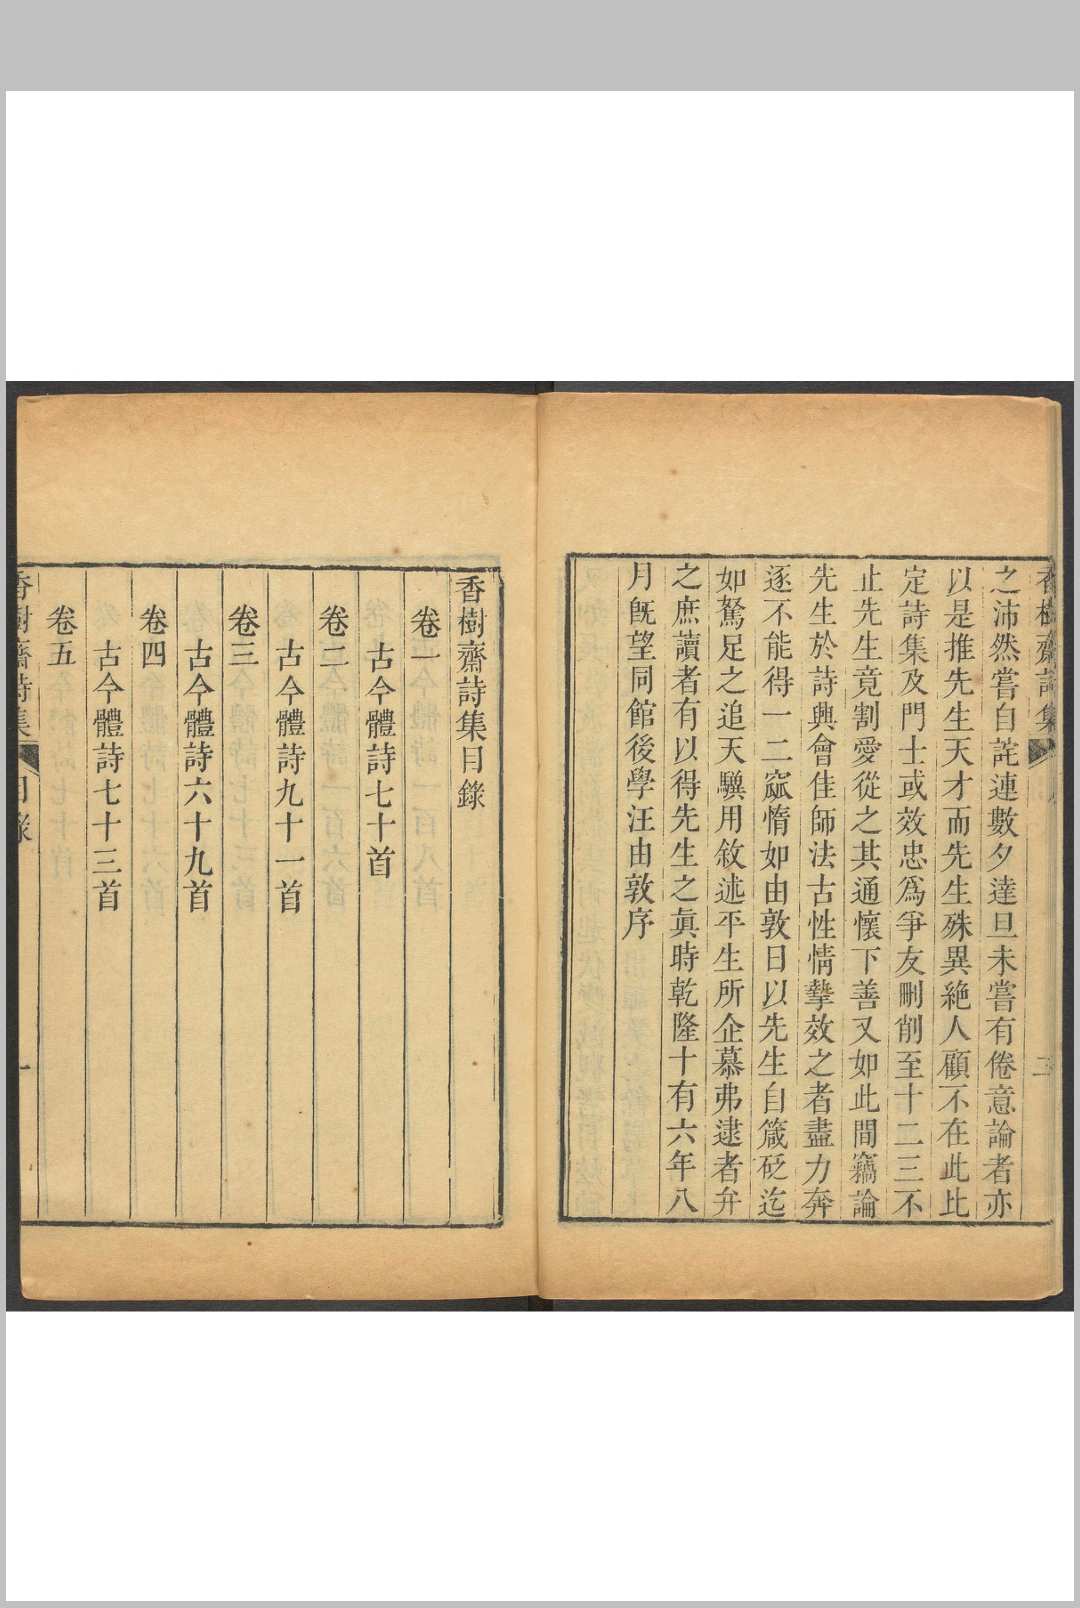 香樹齋詩集
之沛然嘗自詫連數夕達旦未嘗有倦意論者亦
以是推先生天才而先生殊異絶人顧不在此比
定詩集及門士或效忠爲爭友刪削至十二三不
止先生竟割愛從之其通懷下善又如此間竊論
先生於詩興會佳師法古性情摯效之者盡力奔
逐不能得一二窳惰如由敦日以先生自箴砭迄
如駑足之追天驥用敘述平生所企慕弗逮者弁
之庶讀者有以得先生之眞時乾隆十有六年八
月旣望同館後學汪由敦序
香樹齋詩集目錄
卷一
古今體詩七十首
卷二
古今體詩九十一首
卷三
古今體詩六十九首
卷四
古今體詩七十三首
卷五
香樹齋詩集 目錄 一